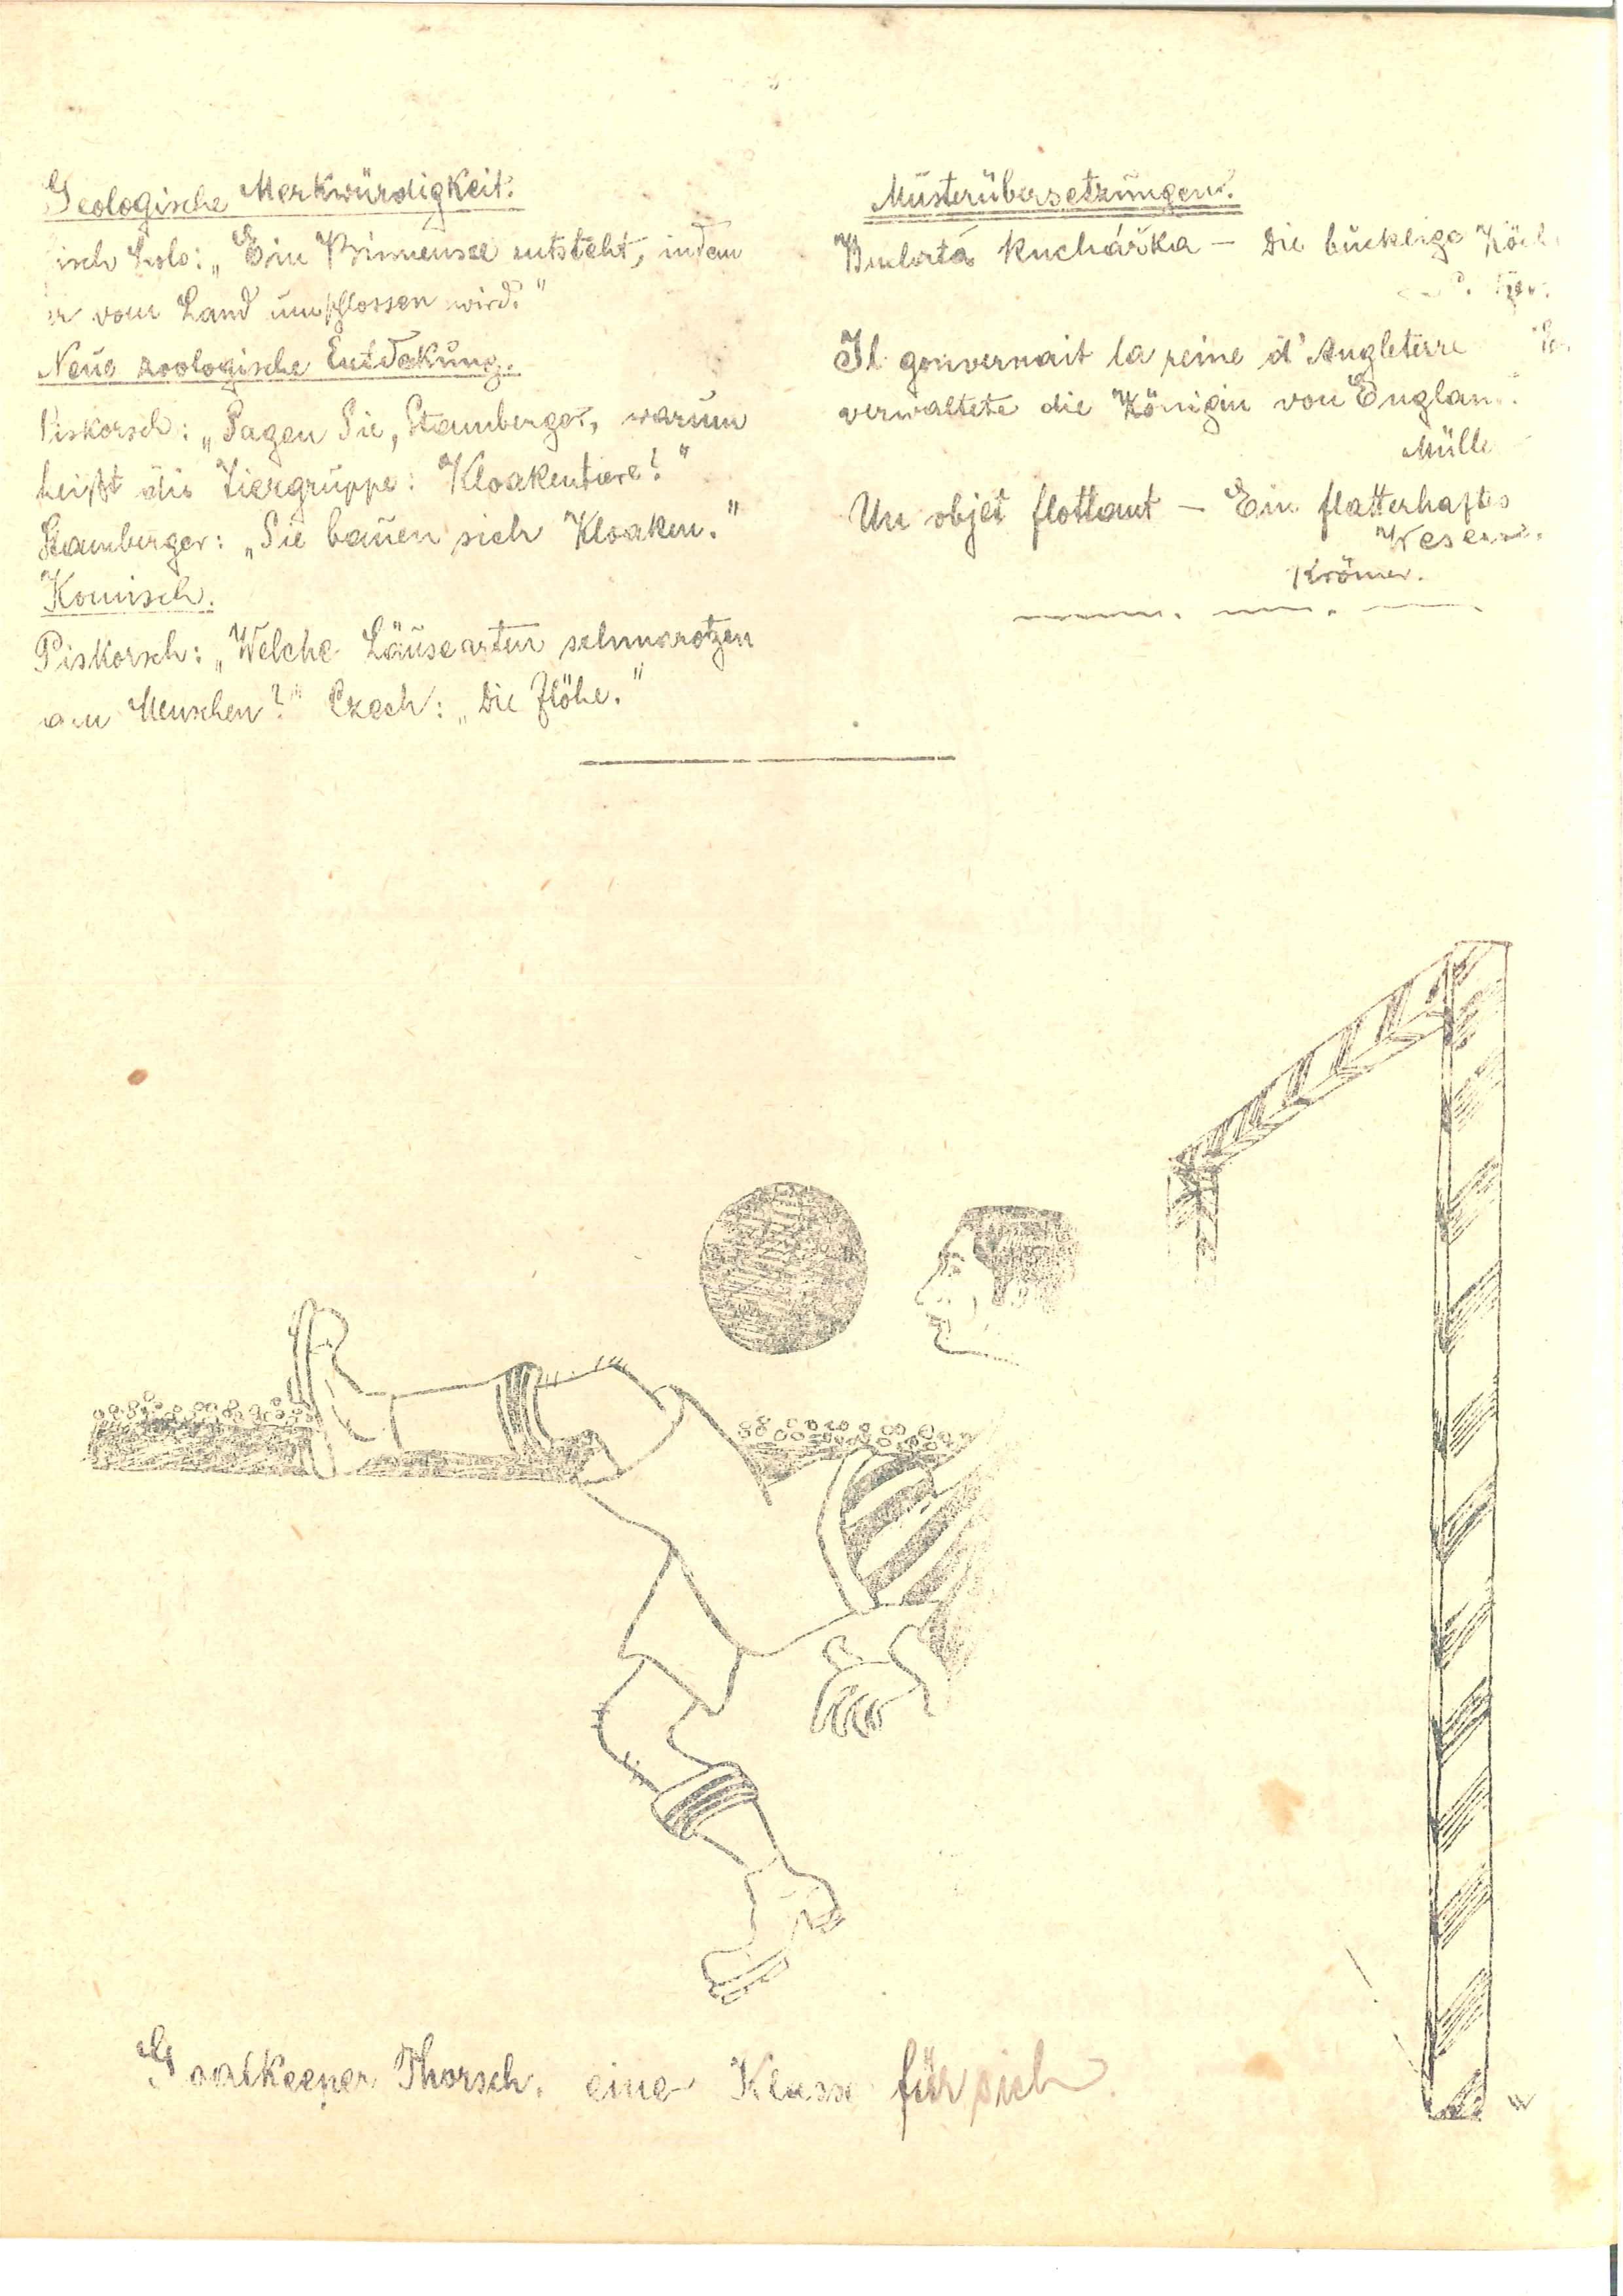 Geologische Merkwürdigkeit.
isch Lolo: „Ein Binnensee entsteht, indem
er vom Land umschlossen wird."
Neue zoologische Entdekung.
Piskorsch: „Sagen Sie, Stamberger, warum
heißt die Tiergruppe: Kloakentiere?"
Stamberger: „Sie bauen sich Kloaken."
Komisch.
Piskorsch: „Welche Läusearten schmarotzen
am Menschen?" Czech: „Die Flöhe."
Musterübersetzungen.
kuchařka — Die bucklige Köch
Il gouvernait la reine d'Angleterre
verwaltete die Königin von Englan
Mülle
Un objet flottant — Ein flatterhaftes
Wesen.
Krömer.
Goalkeeper Thorsch. eine Klasse für sich.